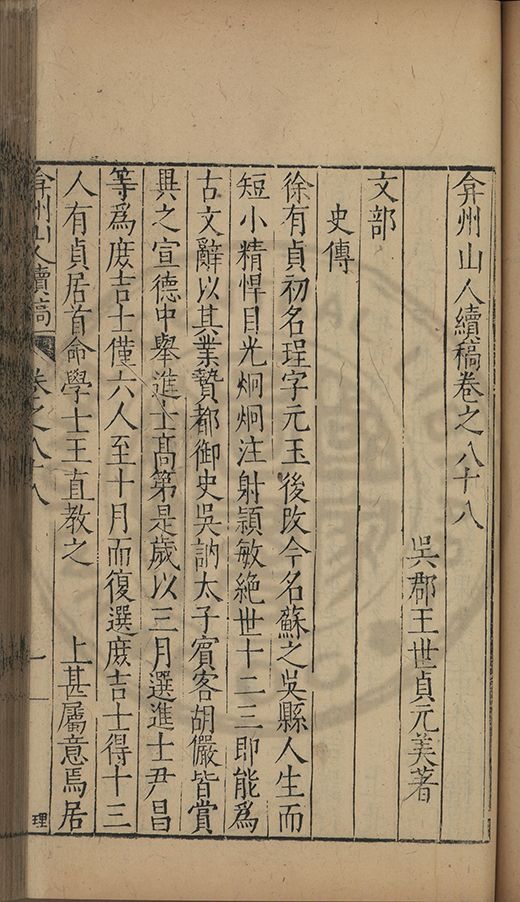 弇州山人續稿卷之八十八
吳郡王世貞元美著
文部
史傳
徐有貞初名珵字元玉後改今名蘇之吳縣人生而
短小精悍目光炯炯注射頴敏絶世十二三即能爲
古文辭以其業贄都御史吳訥太子賓客胡儼皆賞
異之宣德中舉進士髙第是歲以三月選進士尹昌
等爲庻吉士僅六人至十月而復選庻吉士得十三
人有貞居首命學士王直教之 上甚屬意焉居
弇州山人續稿 卷之八十八 一 理